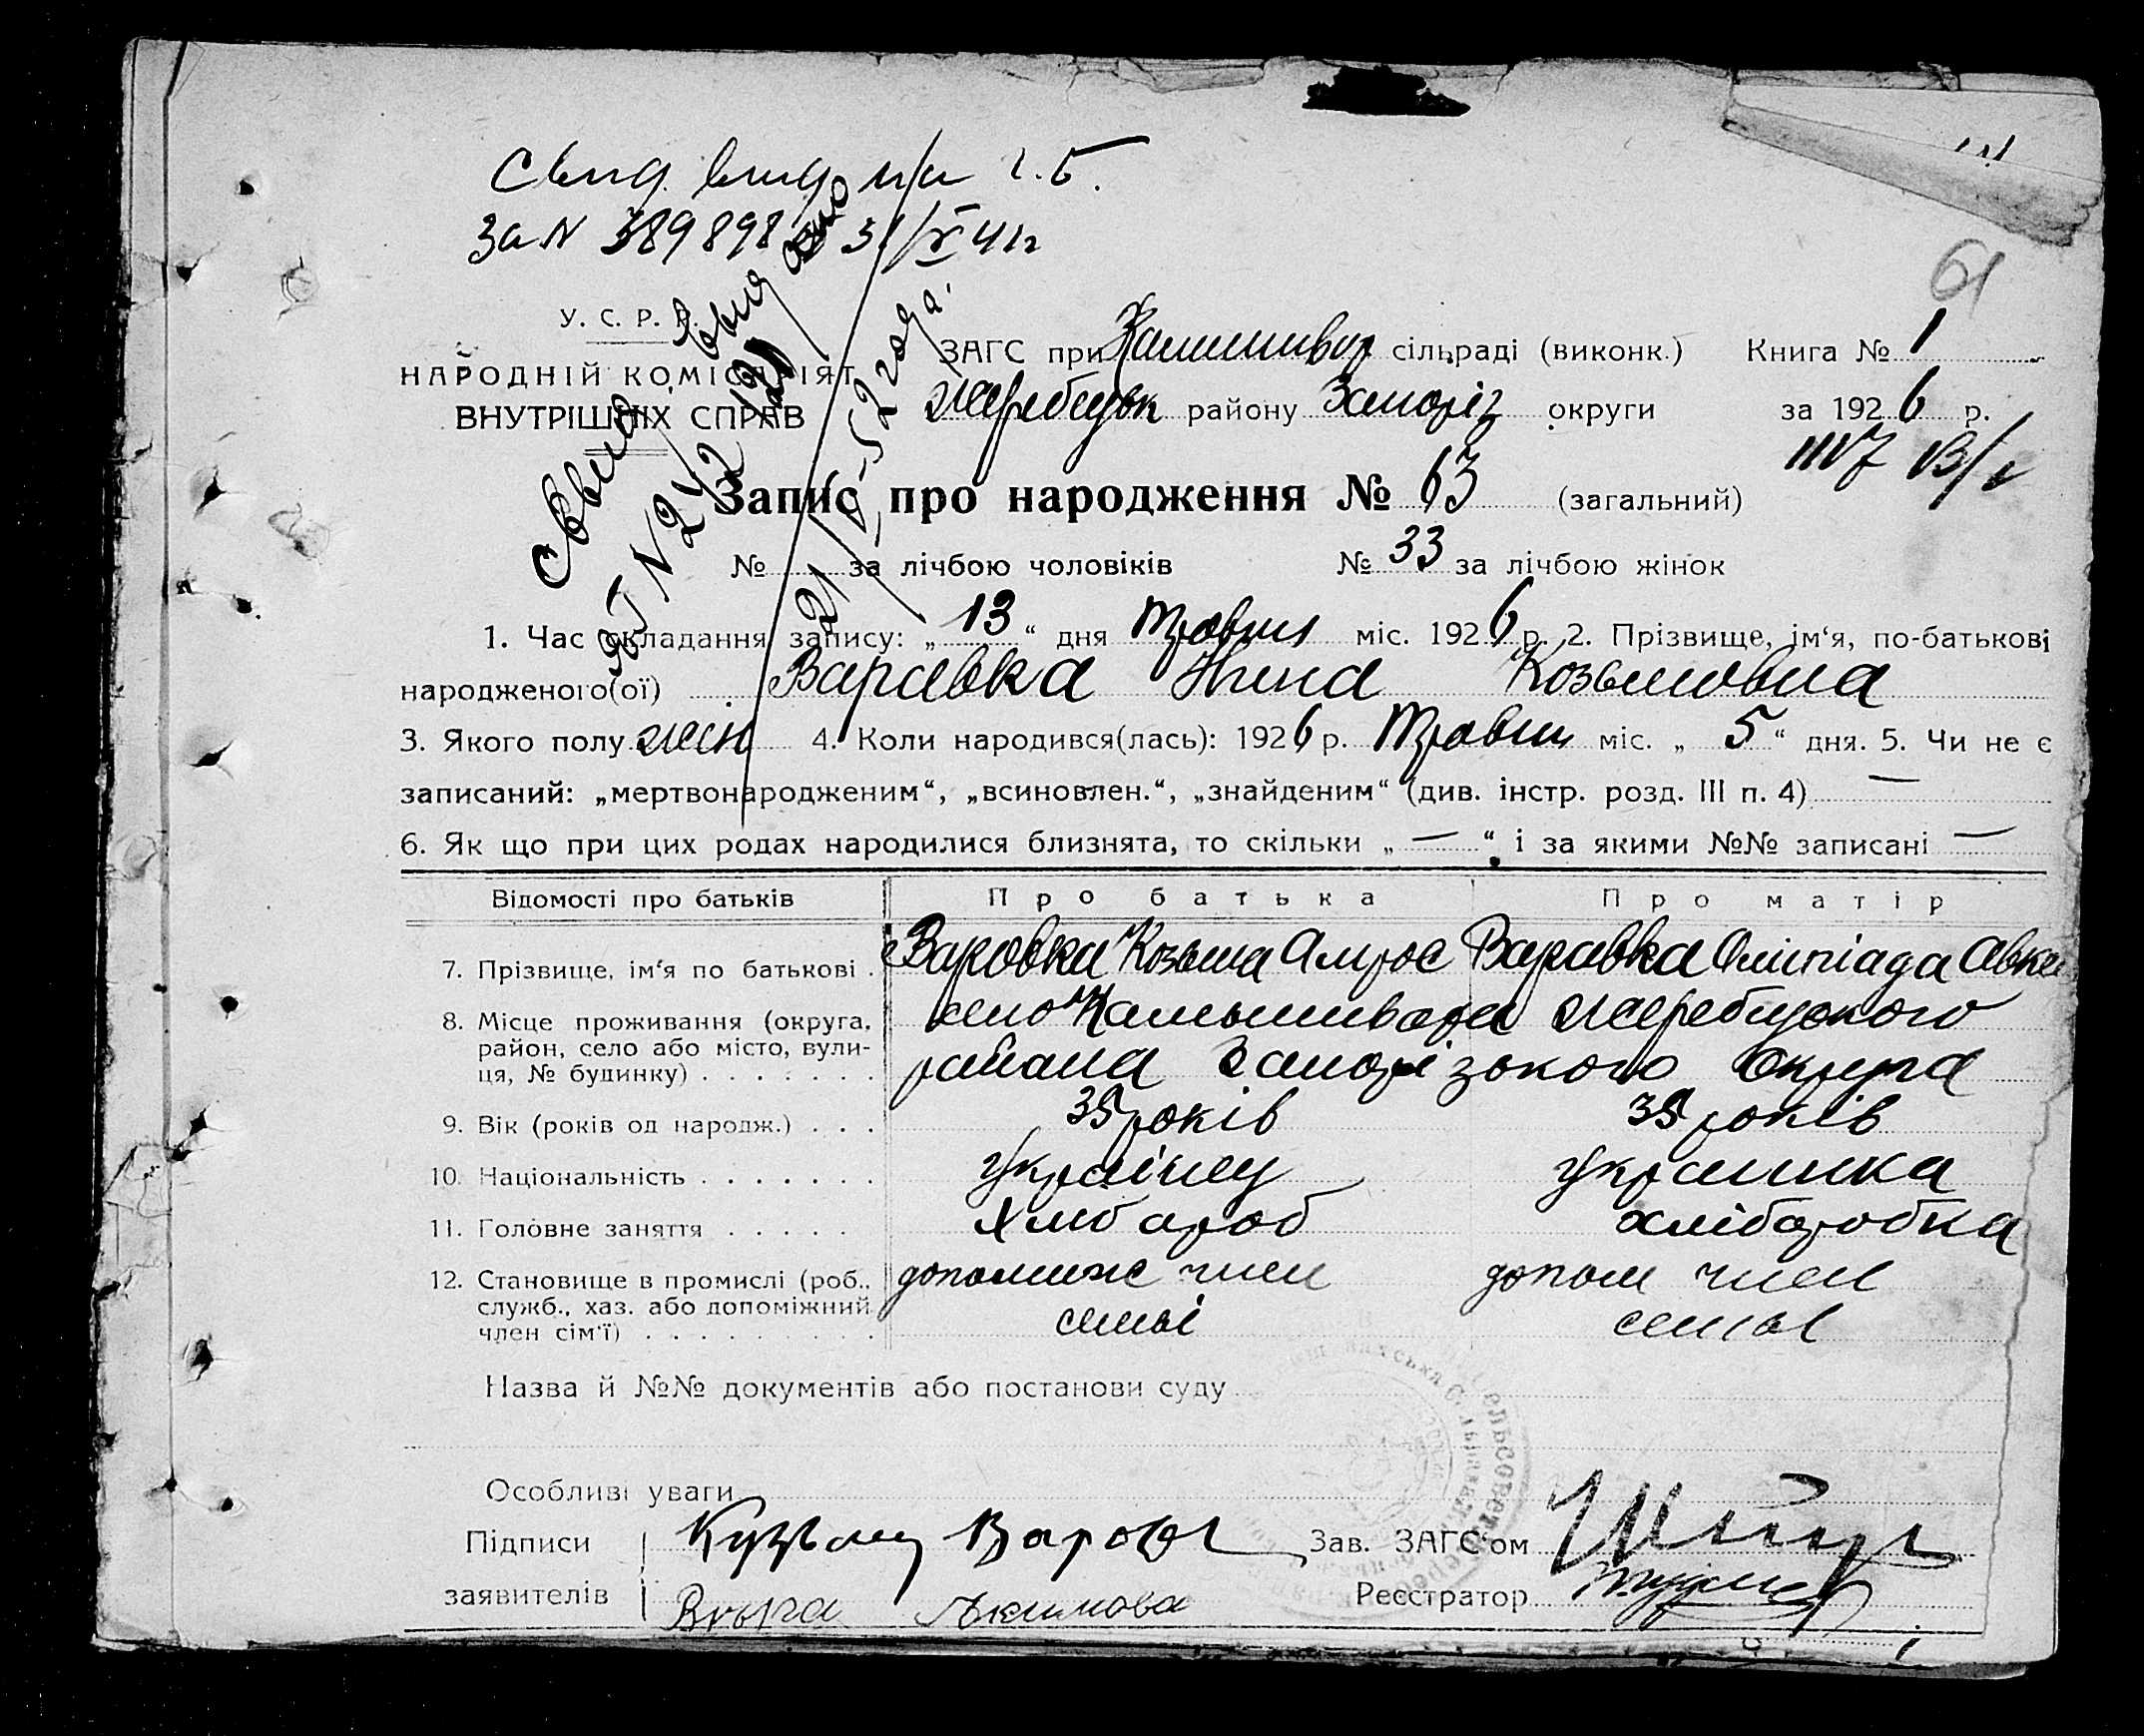 Свид. вид. п/и г.б.
За N 389898 31/V 41 г
61
У. С. Р. Р.
НАРОДНІЙ КОМІСАРІЯТ
ВНУТРІШНІХ СПРАВ
ЗАГС при сільраді (виконк.) Книга № 1
Жеребцовск району Запоріз округи за 1926 р.
Запис про народження № 63 (загальний)
№ за лічбою чоловіків № 33 за лічбою жінок
1. Час складання запису: „ 13 “ дня травня міс. 1926 р. 2. Прізвище, ім‘я, по-батькові
народженого(ої) Варавка Нина Козьмовна
3. Якого полу жен 4. Коли народився(лась): 1926 р. травня міс. „ 5 “ дня. 5. Чи не є
записаний: „мертвонародженим“, „всиновлен.“, „знайденим“ (див. інстр. розд. III п. 4) —
6. Як що при цих родах народилися близнята, то скільки „ — “, і за якими №№ записані —
Відомості про батьків Про батька Про матір
7. Прізвище, ім‘я по батькові Варовка Козьма Амрос Варавка Олімпіада Авка
8. Місце проживання (округа, село Камышеваха Жеребцовского
район, село або місто, вули-
ця, № будинку) района Запорізького Округа
9. Вік (років од народж.) 35 років 35 років
10. Національність Українец Украинка
11. Головне заняття Хлібороб хліборобка
12. Становище в промислі (роб., допоміже член допом член
служб., хаз. або допоміжний
член сім‘ї) семьі семьї
Назва й №№ документів або постанови суду
Особливі уваги
Підписи Кузьма Варовка Зав. ЗАГС‘ом
заявителів Якимова Реєстратор